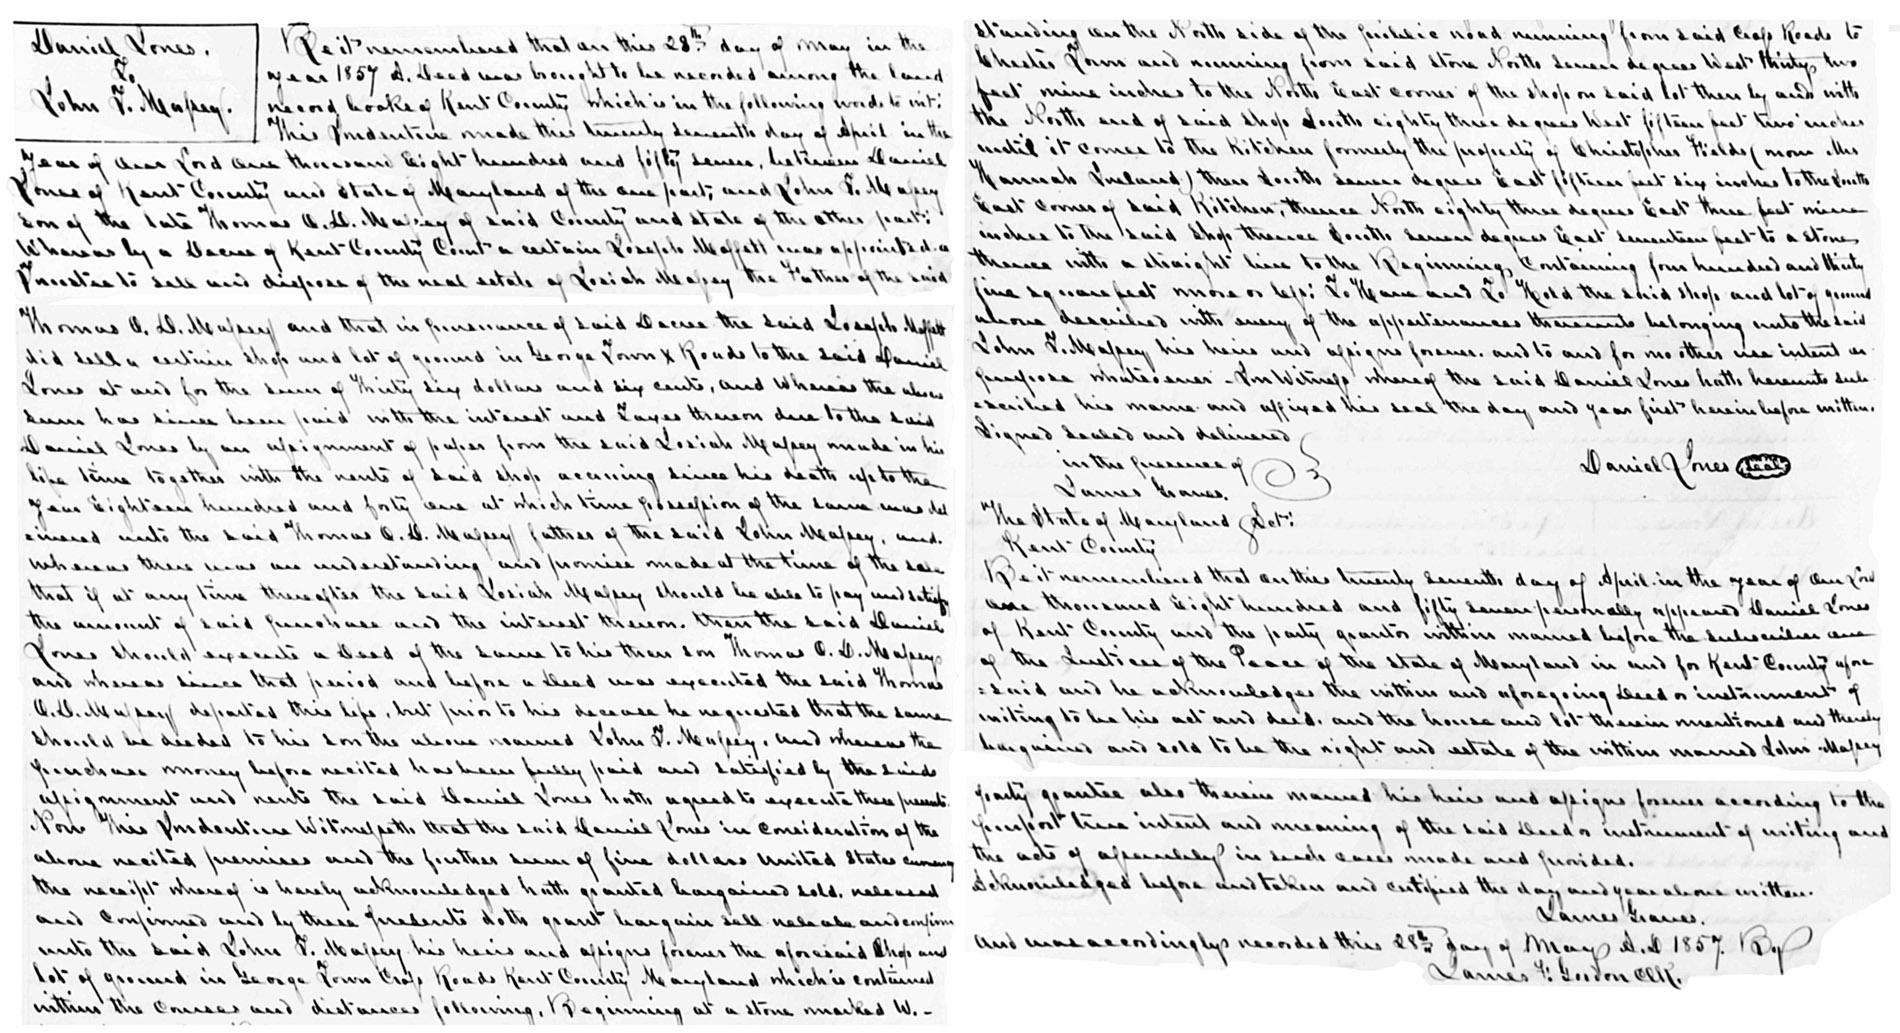 Daniel Jones.
To
John T. Massey.
Be it remembered that on this 28th day of May in the
year 1857 A. Deed was brought to be recorded among the land
record books of Kent County which is in the following words to wit:
This Indenture made this twenty seventh day of April in the
year of our Lord one thousand Eight hundred and fifty seven, between Daniel
Jones of Kent County and State of Maryland of the one part, and John T. Massey
son of the late Thomas O. D. Massey of said County and state of the other part:
Whereas by a Decree of Kent County Court a certain Joseph Moffett was appointed a
Trustee to sell and dispose of the real estate of Josiah Massey the Father of the said
Thomas O. D. Massey and that in pursuance of said Decree the said Joseph Moffett
did sell a certain shop and lot of ground in George Town X Roads to the said Daniel
Jones at and for the sum of Thirty six dollars and six cents, and whereas the above
sum has since been paid with the interest and Taxes thereon due to the said
Daniel Jones by an assignment of paper from the said Josiah Massey made in his
life time together with the rents of said shop accruing since his death up to the
year Eighteen hundred and forty one at which time possession of the same was del
ivered unto the said Thomas O. D. Massey father of the said John Massey, and.
whereas there was an understanding and promise made at the time of the sale
that if at any time thereafter the said Josiah Massey should be able to pay and satisfy
the amount of said purchase and the interest thereon. then the said Daniel
Jones should execute a Deed of the same to his then son Thomas O. D. Massey
and whereas since that period and before a Deed was executed the said Thomas
O. D. Massey departed this life, but prior to his decease he requested that the same
should be deeded to his son the above named John T. Massey, and whereas the
purchase money before recited has been fully paid and satisfied by the said
assignment and rents the said Daniel Jones hath agreed to execute these presents.
Now This Indenture Witnesseth that the said Daniel Jones in consideration of the
above recited premises and the further sum of five dollars United States currency
the receipt whereof is hereby acknowledged hath granted bargained sold, released
and confirmed and by these presents doth grant bargain sell release and confirm
unto the said John T. Massey his heirs and assigns forever the aforesaid Shop and
lot of ground in George Town Cross Roads Kent County Maryland which is contained
within the courses and distances following, Beginning at a stone marked W. -
standing on the North side of the public road running from said Cross Roads to
Chester Town and running from said stone North seven degrees West thirty two
feet nine inches to the North East corner of the shop on said lot then by and with
the North end of said shop South eighty three degrees West fifteen feet two inches
until it comes to the Kitchen formerly the property of Christopher Fields (now Mrs
Hannah Ireland) then South seven degrees East fifteen feet six inches to the South
East corner of said Kitchen, thence North eighty three degrees East three feet nine
inches to the said shop thence South seven degrees East seventeen feet to a stone
thence with a straight line to the Beginning, Containing four hundred and thirty
five square feet more or less: To Have and To Hold the said shop and lot of ground
above described with every of the appertenances thereunto belonging unto the said
John T. Massey his heirs and assigns forever. and to and for no other use intent or
purpose whatsoever - In Witness whereof the said Daniel Jones hath hereunto sub-
scribed his name and affixed his seal the day and year first herein before written.
Signed sealed and delivered
in the presence of
James Graves.
Daniel Jones Seal
The State of Maryland Sct:
Kent County
Be it remembered that on this twenty seventh day of April in the year of our Lord
one thousand Eight hundred and fifty seven personally appeared Daniel Jones
of Kent County and the party grantor within named before the subscriber one
of the Justices of the Peace of the State of Maryland in and for Kent County afore
=said and he acknowledges the within and aforegoing Deed or instrument of
writing to be his act and deed. and the house and lot therein mentioned and thereby
bargained and sold to be the right and estate of the within named John Massey
party grantee also therein named his heirs and assigns forever according to the
purport true intent and meaning of the said Deed or instrument of writing and
the acts of assembly in such cases made and provided.
Acknowledged before and taken and certified the day and year above written.
James Graves.
And was accordingly recorded this 28th day of May A.D 1857. By
James F. Gordon Clk.